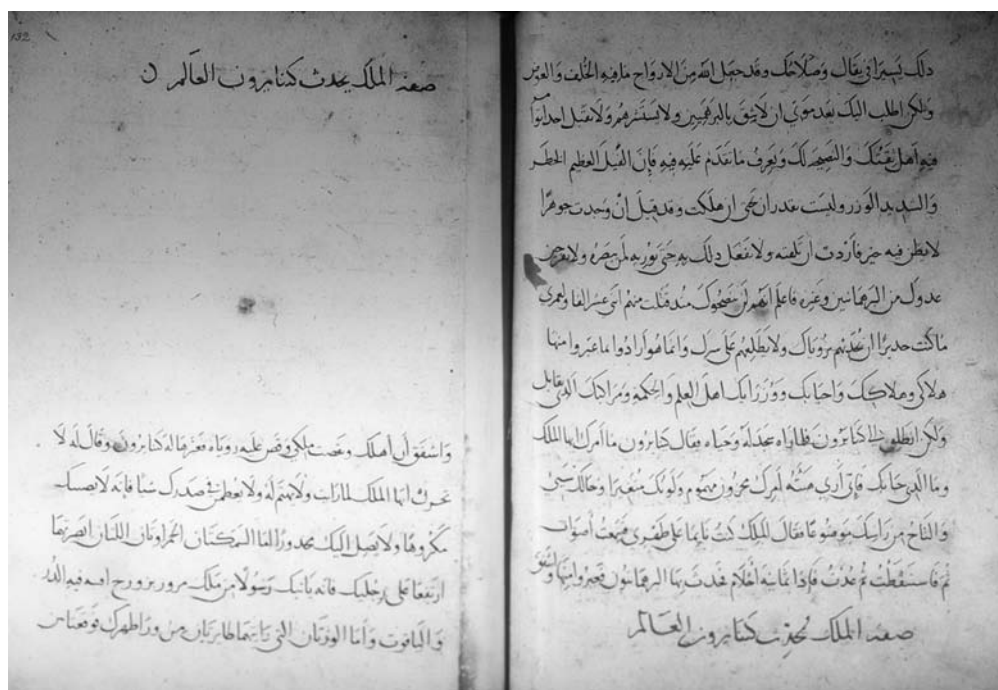 ذلك يسيرا في بقائك وصلاحك وقد جعل الله من الارواح ما فيه الخلف والعوض
ولكن اطلب اليك بعد موتي ان لا تثق بالبرهميين ولا تستشرهم ولا تقبل
فيه اهل ثقتك والنصيحة لك وتعرف ما تقدم عليه فيه فان القتل العظيم الخطر
والشديد الوزر وليست تقدر ان تحيي ان هلكت وقد قيل ان وجدت جوهرا
لا تظن فيه خير فأردت ان تلقيه ولا تفعل ذلك به حتى توريه لمن يبصره ولا تفرحن
عدوك من البرهمانيين وغيره فاعلم انهم لن ينصحوك منذ قتلت منهم اثني عشر الفا ولعمري
ما كنت جديرا ان تحدثهم برؤياك ولا تطلعهم على سرك وانما هو ارادوا ما عبروا منها
هلاكي وهلاكك واحبائك ووزرائك اهل العلم والحكمة ومراكبك التي تقاتل
ولكن انطلق الى كتايرون فلما راه سجد له وحياه فقال كتايرون ما امرك ايها الملك
وما الذي جابك فاني أري هيئة أمرك محزون مهموم ولونك متغيرا وحالك سيئ
والتاج من راسك موضوعا فقال الملك كنت نايما على ظهري فسمعت أصوات
ثم فاستيقظت ثم عدت فإذا ثمانية أحلام فحدثت بها البرهمانيون فعبروا منها
صفة الملك يحدث كتايرون العالم
152
صفة الملك يحدث كتايرون العالم
واشفق أن أهلك وغصب ملكي وقص عليه روياه فعبرها له كتايرون وقال له لا
يحزنك ايها الملك لما رات ولا تهتم له ولا يعظمن في صدرك شئا فانه لا يصيبك
مكروها ولا يصل اليك محذورا اما السمكتان الحمراوتان اللتان ابصرتهما
ارتفعا على رجليك فانه ياتيك رسولا من ملك بدرج فيه الدر
والياقوت وأما الوزتان التي رايتهما طايرتان من ورا ظهرك فوقعتا بين